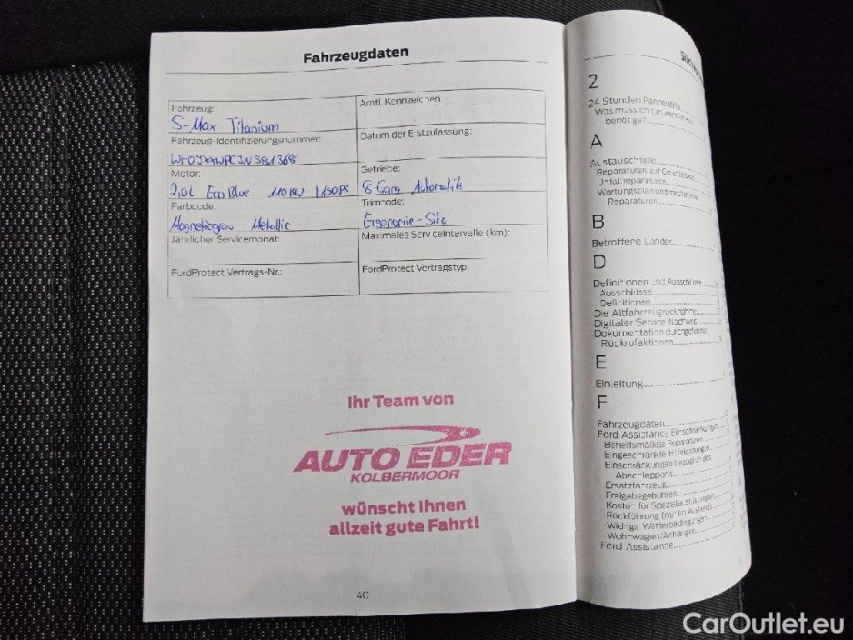 Fahrzeugdaten
Fahrzeug:
S-Max Titanium
Amtl. Kennzeichen
Fahrzeug-Identifizierungsnummer:
Datum der Erstzulassung:
Motor:
2,0L EcoBlue 110 KW 150PS
Getriebe:
8 Gang Automatik
Farbcode:
Magneticgrau Metallic
Trimcode:
Ergonomie-Sitz
Jährlicher Servicemonat:
Maximales Serviceintervalle (km):
FordProtect Vertrags-Nr.:
FordProtect Vertragstyp
Ihr Team von
AUTO EDER
KOLBERMOOR
wünscht Ihnen
allzeit gute Fahrt!
40
2
24 Stunden Pannenhilfe
Was muss ich tun, wenn ich
benötige?
A
Austauschteile
Reparaturen auf
Unfallreparaturen
Wartungsplan und mechanische
Reparaturen
B
Betroffene Länder
D
Definitionen und Ausschlüsse
Ausschlüsse
Definitionen
Die Altfahrzeugrücknahme
Digitaler Service Nachweis
Dokumentation durchgeführter
Rückrufaktionen
E
Einleitung
F
Fahrzeugdaten
Ford Assistance Einschränkungen
Behelfsmäßige Reparaturen
Eingeschränkte Hilfeleistungen
Einschränkungen bezüglich des
Abschleppens
Ersatzfahrzeug
Freigabegebühren
Kosten für Spezialausrüstungen
Rückführung (nur im Ausland)
Widrige Wetterbedingungen
Wohnwagen/Anhänger
Ford Assistance
CarOutlet.eu